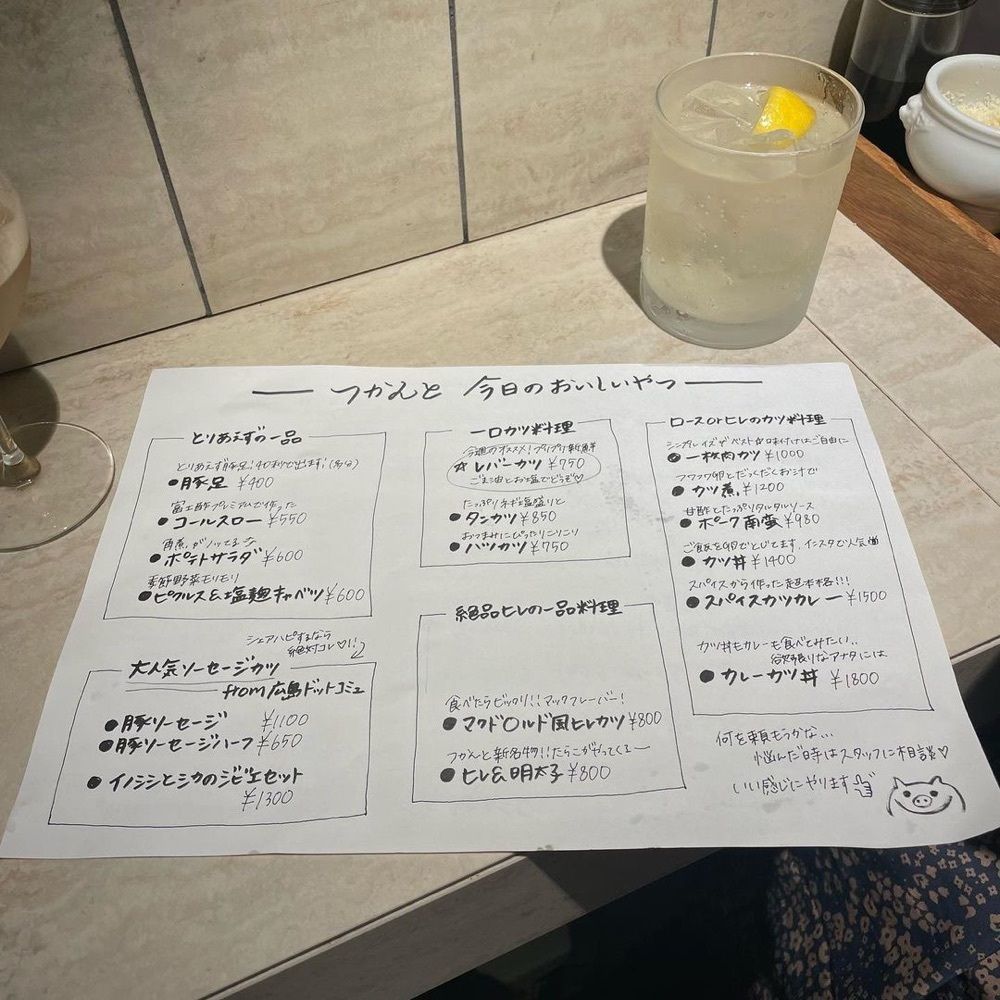 つかんと 今日のおいしいやつ
とりあえずの一品
とりあえず豚足!40秒で出ます!(多分)
●豚足 ¥400
富士酢プレミアムで作った
●コールスロー ¥550
角煮がノッてるな
●ポテトサラダ ¥600
季節野菜モリモリ
●ピクルス&塩麹キャベツ ¥600
シェアハピするなら
絶対コレ♡!!
大人気ソーセージカツ
from広島ドットコミュ
●豚ソーセージ ¥1100
●豚ソーセージハーフ ¥650
●イノシシとシカのジビエセット
¥1300
一口カツ料理
今週のオススメ!プリプリ新鮮
☆レバーカツ ¥750
ごま油とお塩でどうぞ♡
たっぷりネギ塩盛りと
●タンカツ ¥850
おつまみにぴったりこりこり
●ハツカツ ¥750
絶品ヒレの一品料理
食べたらビックリ!!マックフレーバー!
●マクド〇ルド風ヒレカツ ¥800
つかんと新名物!!たらこがやってくるー
●ヒレ&明太子 ¥800
ロースorヒレのカツ料理
シンプルイズザベスト☆味付けはご自由に
●一枚肉カツ ¥1000
フワフワ卵とだっくだくお汁で
●カツ煮 ¥1200
甘酢とたっぷりタルタルソース
●ポーク南蛮 ¥980
ご飯を卵でとじてます。インスタで人気
●カツ丼 ¥1400
スパイスから作った超本格!!!
●スパイスカツカレー ¥1500
カツ丼もカレーも食べてみたい..
欲張りなアナタには
●カレーカツ丼 ¥1800
何を頼もうかな...
悩んだ時はスタッフに相談♡
いい感じにやります